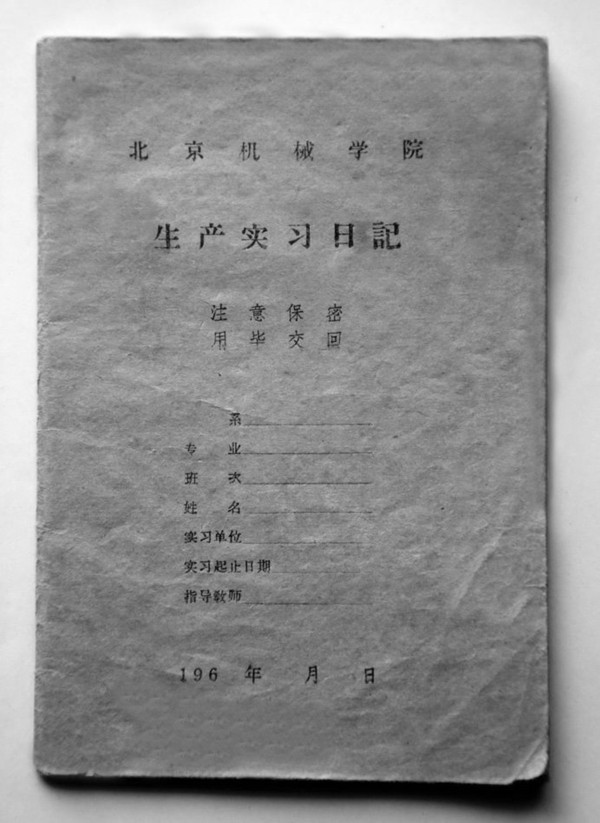 北京机械学院
生产实习日記
注意保密
用毕交回
系
专业
班次
姓名
实习单位
实习起止日期
指导教师
196 年 月 日